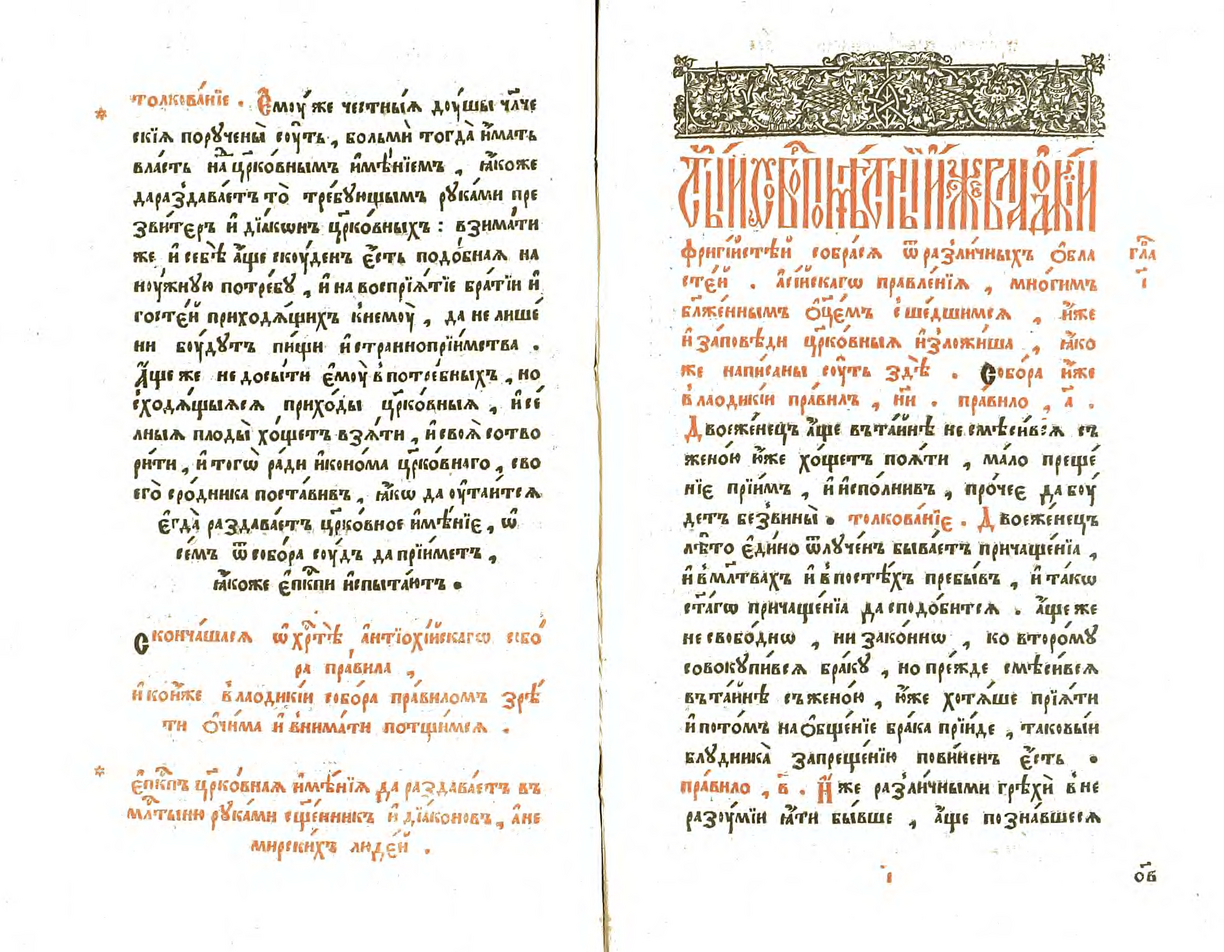 толкова́нїе . Е҆моу́же честны́ѧ доу́шы чл҃че
скїѧ порꙋчены̀ соу́ть , больмѝ тогда̀ и҆мать
власть на црⷪ҇ко́внымъ и҆мѣ́нїемъ , ꙗ҆́коже
дараздава́етъ то̀ тре́бꙋющымъ рꙋка́ми пре
зви́теръ и҆ дїа́конъ црⷪ҇ко́вныхъ : взима́ти
же и҆ себѣ̀ а҆́ще скоу́денъ є҆́сть подо́бнаѧ на
ноу́жнꙋю потре́бꙋ , и҆ на воспрїѧ́тїе бра́тїи и҆
госте́й приходѧ́щихъ кнемоу̀ , да не лише
ни боу́дꙋтъ пи́щи и҆ страннопрїи́мства .
А҆́ще же не до́сыти є҆моу̀ в потре́бныхъ , но
сходѧ́щыѧсѧ прихо́ды црⷪ҇ко́вныѧ , и҆ се́
лныѧ плоды̀ хо́щетъ взѧ́ти , и҆ своѧ̀ сотво
ри́ти , и҆ тогѡ̀ ра́ди и҆коно́ма црⷪ҇ко́внаго , сво
его̀ сро́дника поста́вивъ , ꙗ҆́кѡ да оу҆таи́тсѧ
є҆гда̀ раздава́етъ црⷪ҇ко́вное и҆мѣ́нїе , ѡ҆
се́мъ ѿ собо́ра соу́дъ да прїи́метъ ,
ꙗ҆́коже є҆пⷭ҇кпи и҆спыта́ютъ .
Сконча́шасѧ ѡ҆ хрⷭ҇тѣ̀ а҆нтїохі́йскагѡ собо́
ра пра́вила ,
и҆ кои҆́же в лаодикі́и собо́ра пра́виломъ зрѣ́
ти ѻ҆чи́ма и҆ внима́ти потщи́мсѧ .
є҆пⷭ҇кпъ црⷪ҇ко́внаѧ и҆мѣ́нїѧ да раздава́етъ въ
млⷭ҇тыню рꙋка́ми сщ҃е́нникъ и҆ дїа́коновъ , а҆ не
мирски́хъ люде́й .
ст҃ы́й собо́ръ помѣ́стный , и҆́же в лаодикі́и
фригі́йстѣй собра́сѧ ѿ разли́чныхъ ѻ҆бла
сте́й . а҆сі́йскагѡ правле́нїѧ , мно́гимъ
бл҃же́ннымъ ѻ҆ц҃е́мъ сше́дшимсѧ , и҆́же
и҆ за́повѣди црⷪ҇ко́вныѧ и҆зложи́ша , ꙗ҆́ко
же напи́саны соу́ть здѣ̀ . Собо́ра и҆́же
в лаодикі́и пра́вилъ , н҃и . пра́вило , а҃ .
Двоеже́нецъ а҆́ще въ та́йнѣ не смѣси́всѧ съ
жено́ю ю҆́же хо́щетъ поѧ́ти , ма́ло преще́
нїе прїи́мъ , и҆ и҆спо́лнивъ , про́чее да боу́
детъ без̾вины̀ . толкова́нїе . Двоеже́нецъ
лѣ́то є҆ди́но ѿлꙋче́нъ быва́етъ причаще́нїѧ ,
и҆ в мл҃твахъ и҆ в постѣ́хъ пребы́въ , и҆ та́кѡ
ст҃а́гѡ причаще́нїѧ да сподо́битсѧ . а҆́ще же
не свобо́днѡ , ни зако́ннѡ , ко второ́мꙋ
совокупи́всѧ бра́кꙋ , но пре́жде смѣси́всѧ
въ та́йнѣ съ жено́ю , ю҆́же хотѧ́ше прїѧ́ти
и҆ пото́мъ на ѻ҆бще́нїе бра́ка прїи́де , таковы́й
блꙋдника̀ запреще́нїю пови́ненъ є҆́сть .
пра́вило , в҃ . И҆́же разли́чными грѣхѝ в не
разоу́мїи ꙗ҆́ти бы́вше , а҆́ще позна́вшесѧ
гла҃
і҃
і
ѻ҃в